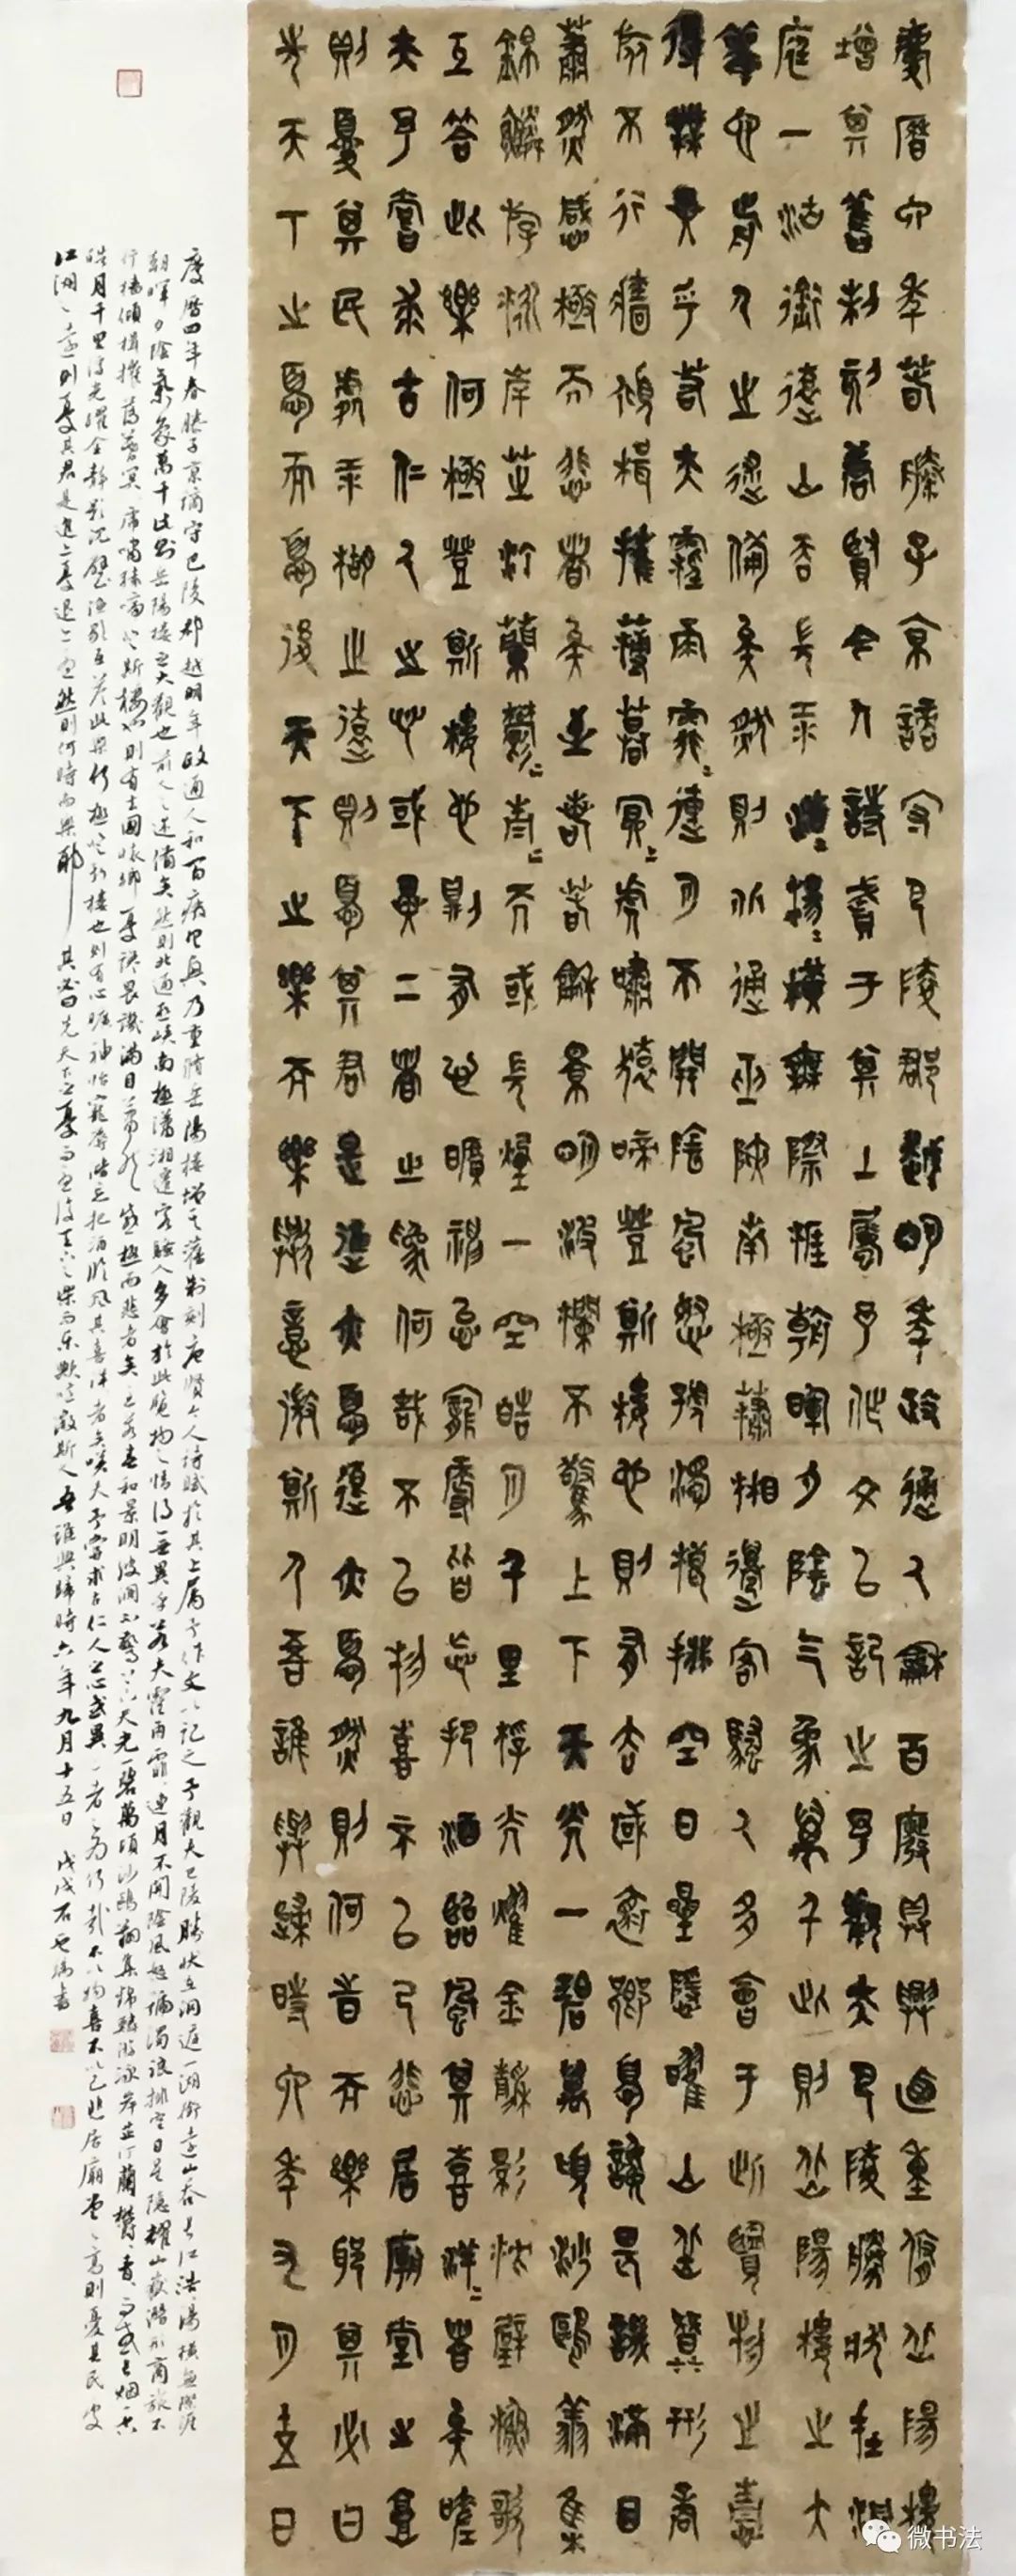 慶曆四年春滕子京謫守巴陵郡越明年政通人和百廢具興迺重修岳陽樓
增其舊制刻唐賢今人詩賦于其上屬予作文以記之予觀夫巴陵勝狀在洞
庭一湖銜遠山吞長江浩浩湯湯橫無際涯朝暉夕陰氣象萬千此則岳陽樓之大
觀也前人之述備矣然則北通巫峽南極瀟湘遷客騷人多會于此覽物之情
得無異乎若夫霪雨霏霏連月不開陰風怒號濁浪排空日星隱曜山岳潛形商
旅不行檣傾楫摧薄暮冥冥虎嘯猿啼登斯樓也則有去國懷鄉憂讒畏譏滿目
蕭然感極而悲者矣至若春和景明波瀾不驚上下天光一碧萬頃沙鷗翔集
錦鱗游泳岸芷汀蘭鬱鬱青青而或長煙一空皓月千里浮光耀金靜影沈璧漁歌
互答此樂何極登斯樓也則有心曠神怡寵辱皆忘把酒臨風其喜洋洋者矣嗟
夫予嘗求古仁人之心或異二者之為何哉不以物喜不以己悲居廟堂之高
則憂其民處乎湖之遠則憂其君是進亦憂退亦憂然則何時而樂耶其必曰
先天下之憂而憂後天下之樂而樂歟噫微斯人吾誰與歸時六年九月十五日
慶曆四年春滕子京謫守巴陵郡越明年政通人和百廢具興乃重修岳陽樓增其舊制刻唐賢今人詩賦於其上屬予作文以記之予觀夫巴陵勝狀在洞庭一湖銜遠山吞長江浩浩湯湯橫無際涯
朝暉夕陰氣象萬千此則岳陽樓之大觀也前人之述備矣然則北通巫峽南極瀟湘遷客騷人多會於此覽物之情得無異乎若夫霪雨霏霏連月不開陰風怒號濁浪排空日星隱耀山岳潛形商旅不
行檣傾楫摧薄暮冥冥虎嘯猿啼登斯樓也則有去國懷鄉憂讒畏譏滿目蕭然感極而悲者矣至若春和景明波瀾不驚上下天光一碧萬頃沙鷗翔集錦鱗游泳岸芷汀蘭鬱鬱青青而或長煙一空
皓月千里浮光耀金靜影沉璧漁歌互答此樂何極登斯樓也則有心曠神怡寵辱皆忘把酒臨風其喜洋洋者矣嗟夫予嘗求古仁人之心或異二者之為何哉不以物喜不以己悲居廟堂之高則憂其民處
江湖之遠則憂其君是進亦憂退亦憂然則何時而樂耶其必曰先天下之憂而憂後天下之樂而樂歟噫微斯人吾誰與歸時六年九月十五日 戊戌
微书法